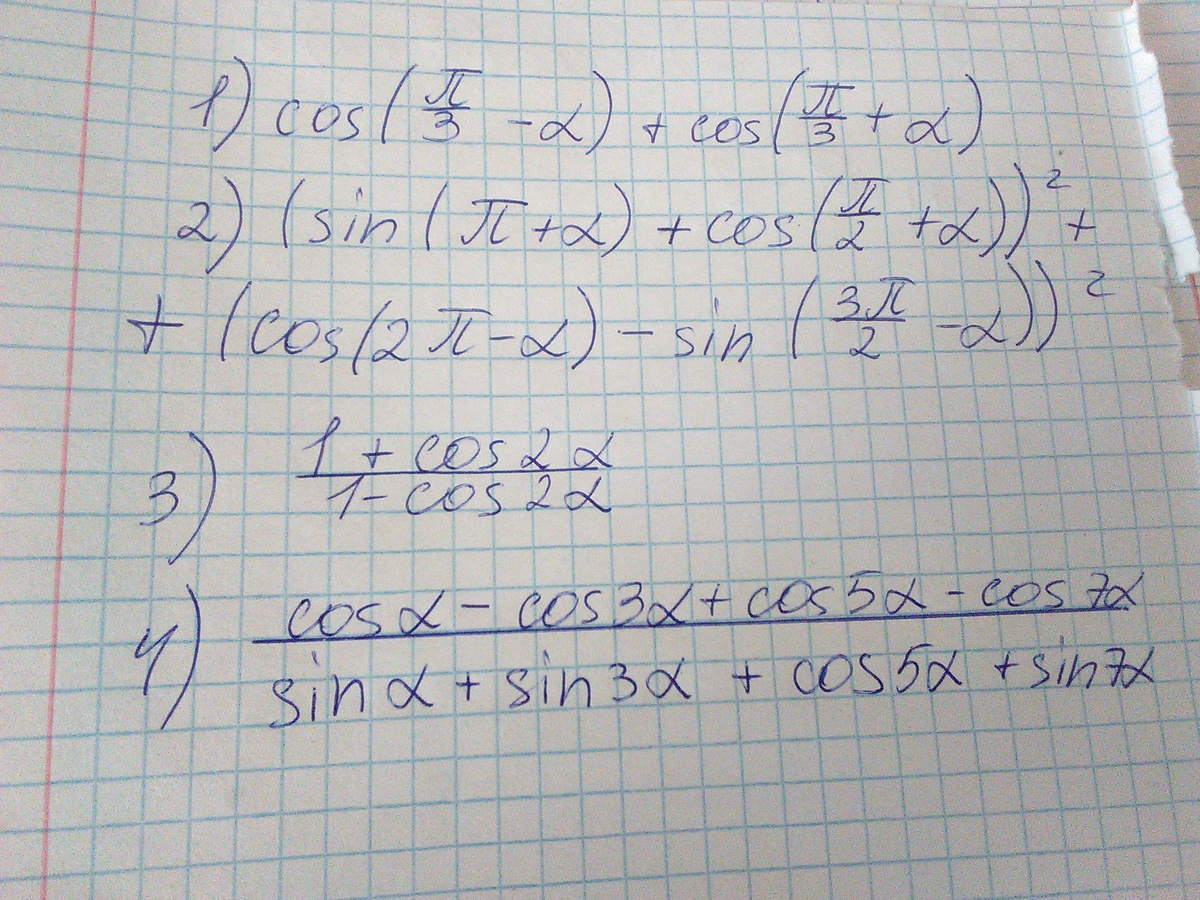 1) cos(π/3 - α) + cos(π/3 + α)
2) (sin(π+α) + cos(π/2 + α))² +
+ (cos(2π-α) - sin(3π/2 - α))²
3) (1 + cos2α)/(1 - cos2α)
4) (cosα - cos3α + cos5α - cos7α)/(sinα + sin3α + cos5α + sin7α)